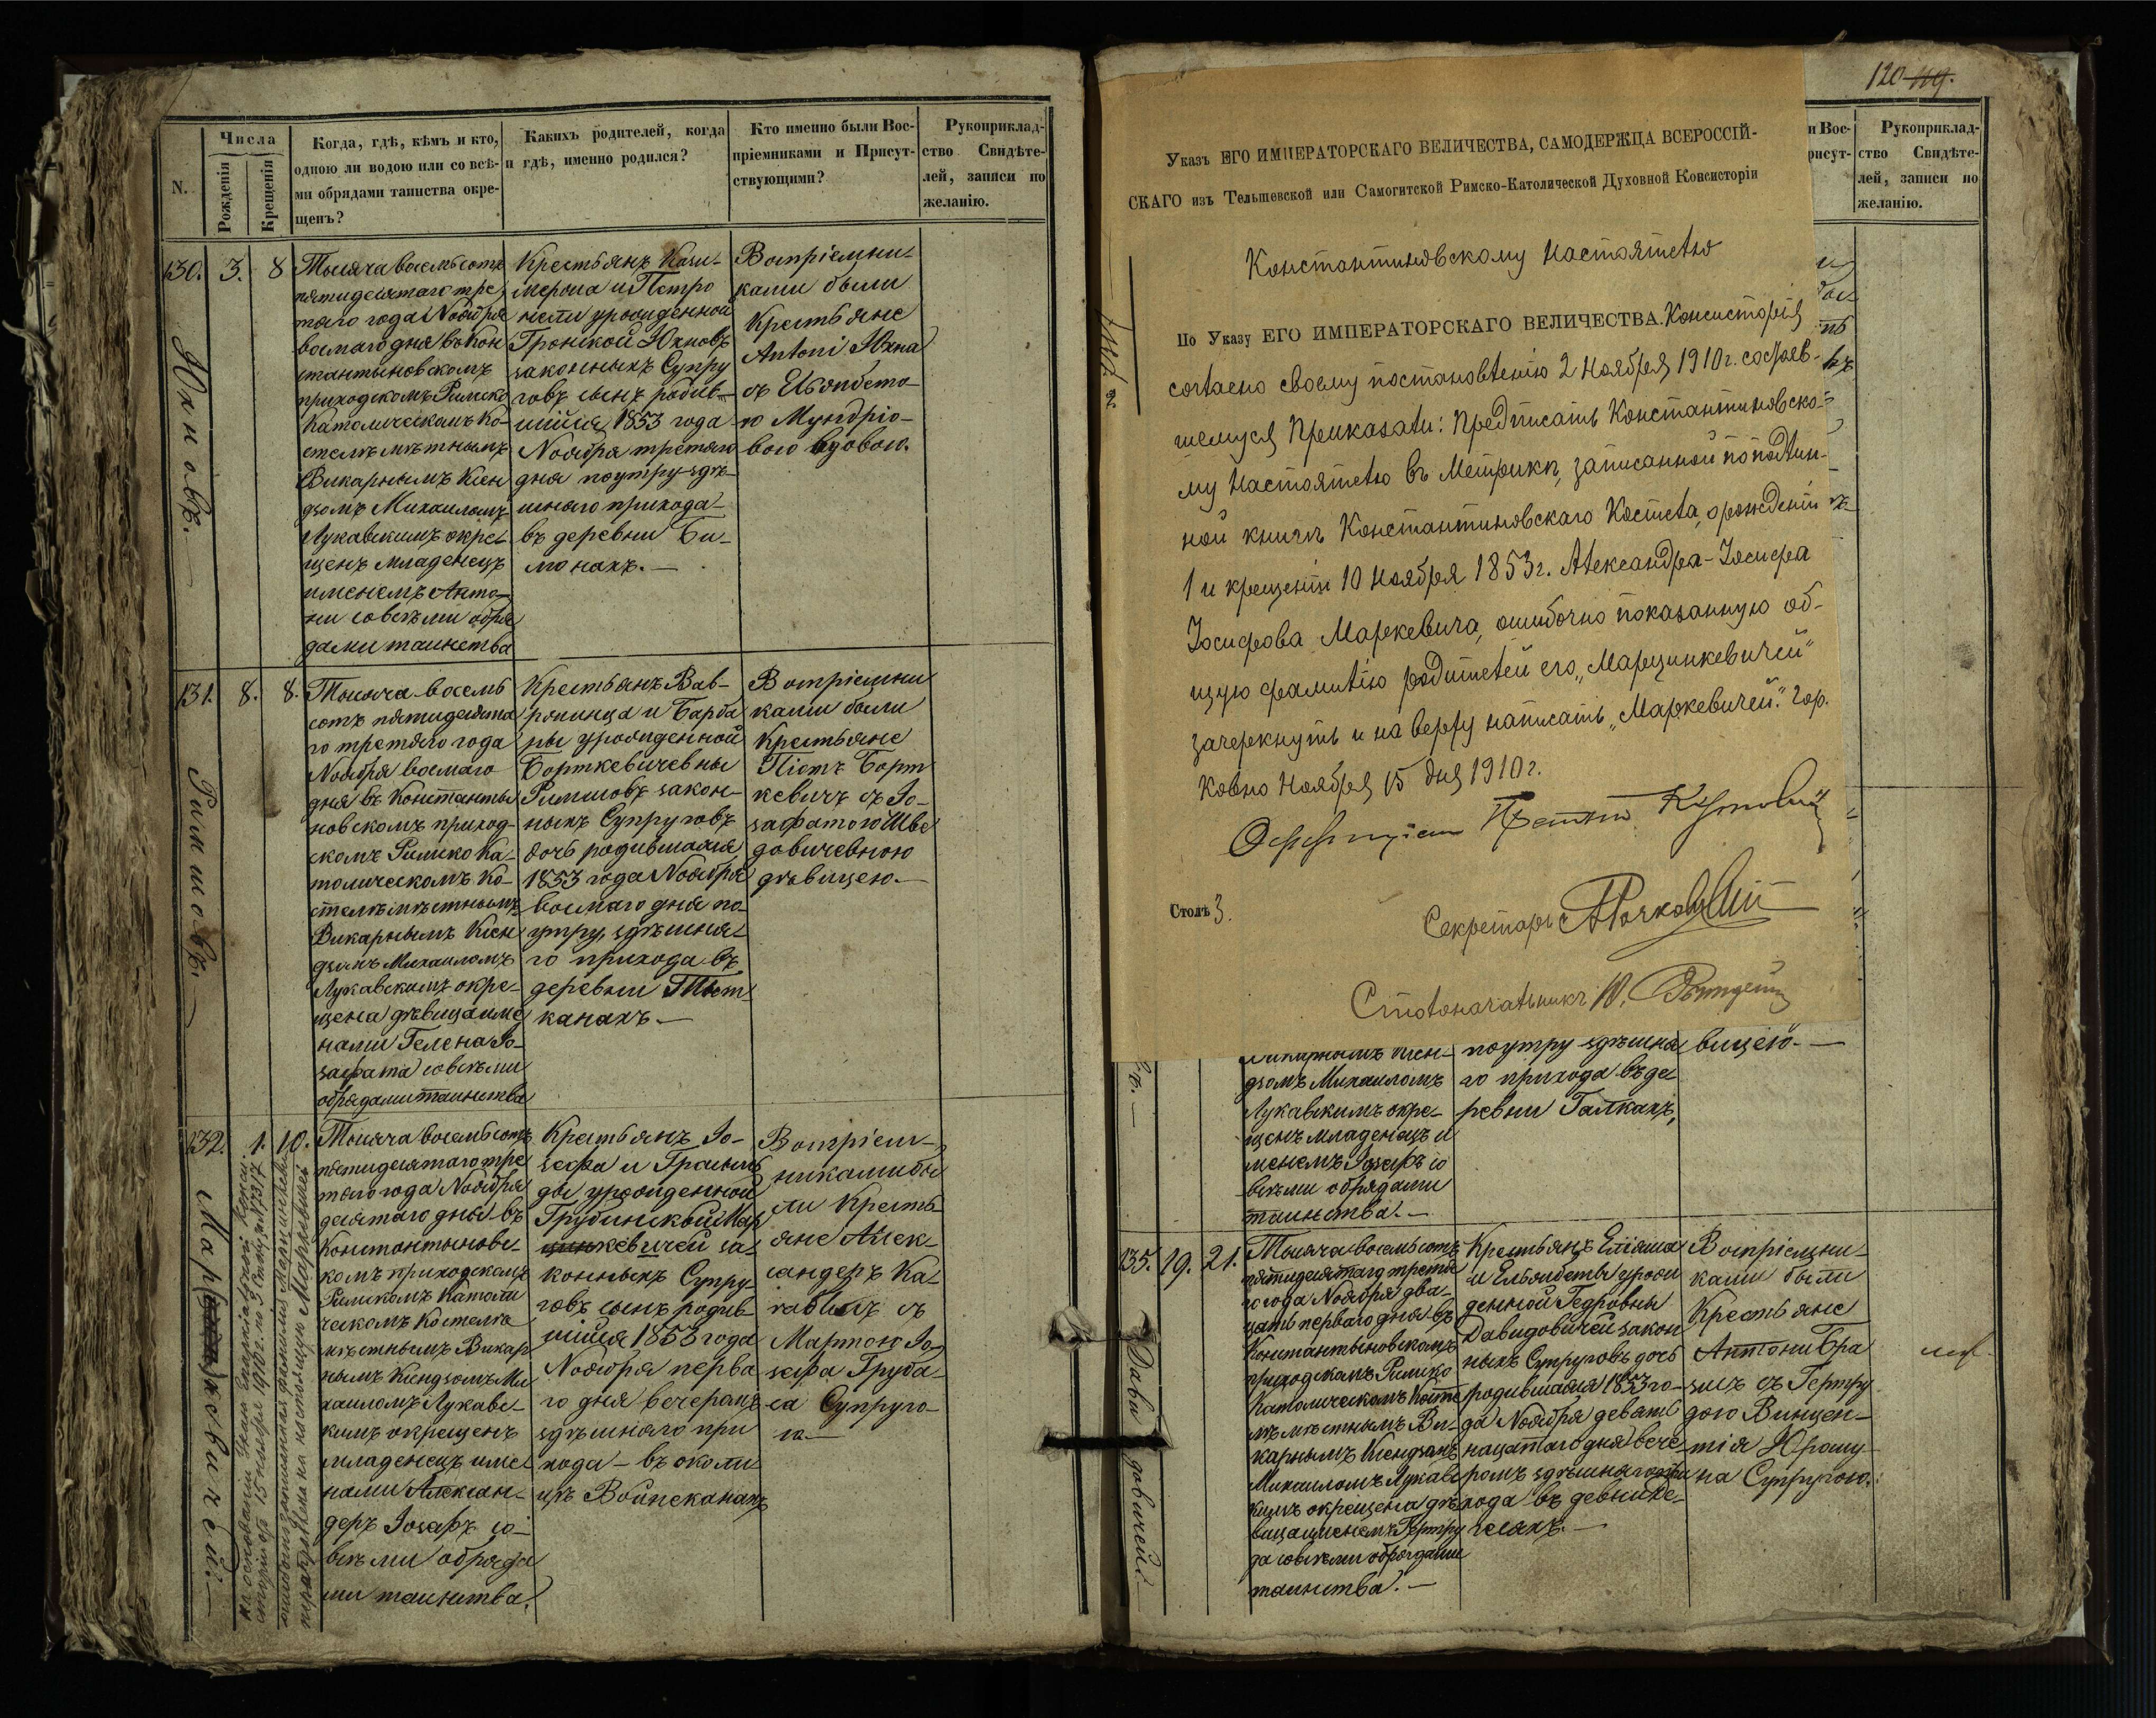 N.
Числа
Рожденія
Крещенія
Когда, гдѣ, кѣмъ и кто,
одною ли водою или со всѣ-
ми обрядами таинства окре-
щенъ?
Какихъ родителей, когда
и гдѣ, именно родился?
Кто именно были Вос-
пріемниками и Присут-
ствующими?
Рукоприклад-
ство Свидѣте-
лей, записи по
желанію.
130. 3. 8
Юхновъ.
Тысяча восемьсотъ
пятидесятаго тре
тяго года Ноября
восмаго дня въ Кон
стантыновскомъ
приходскомъ Римско
Католическомъ Ко-
стелѣ мѣстнымъ
Викарнымъ Ксен
дзомъ Михаиломъ
Лукавскимъ окре-
щенъ младенецъ
именемъ Анто-
ни со всѣми обря
дами таинства
Крестьянъ Кази-
мероша и Петро
нели урожденной
Юхновъ
законныхъ Супру
говъ сынъ родив-
шійся 1853 года
Ноября третяго
дня поутру здѣ-
шняго прихода
въ деревни Би-
монахъ.—
Воспріемни-
ками были
Крестьяне
Antoni Юхна
съ Ельжбето-
ю Мундріо-
вою вдовою.
131. 8. 8.
Римшовъ.
Тысяча восемь
сотъ пятидесята
го третяго года
Ноября восмаго
дня въ Константы
новскомъ приход-
скомъ Римско Ка-
толическомъ Ко-
стелѣ мѣстнымъ
Викарнымъ Ксен
дзомъ Михаиломъ
Лукавскимъ окре-
щена дѣвица име
нами Гелена Іо-
зафата со всѣми
обрядами таинства
Крестьянъ Вав-
рпинца и Барба
ры урожденной
Борткевичевны
Римшовъ закон-
ныхъ Супруговъ
дочь родившаяся
1853 года Ноября
восмаго дня по-
утру, здѣшня-
го прихода въ
деревни
канахъ.—
Воспріемни
ками были
Крестьяне
Піотъ Борт
кевичъ съ Іо-
зафатою Шве
довичевною
дѣвицею.—
132. 1. 10.
Маркевичей.—
На основаніи Указа Епархіальной Конси-
сторіи отъ 15 ноября 1910 г. по 3 Столу за №7317
ошибочно записанная фамилія Марцинкевич
переправлена на настоящую Маркевичей
Тысяча восемьсотъ
пятидесятаго тре
тяго года Ноября
десятаго дня въ
Константыновс-
комъ приходскомъ
Римскомъ Католи
ческомъ Костелѣ
мѣстнымъ Викар
нымъ Ксендзомъ Ми
хаиломъ Лукавс-
кимъ окрещенъ
младенецъ име
нами Алексан-
деръ Іозефъ со
всѣми обряда
ми таинства.
Крестьянъ Іо-
зефа и
ды урожденной
Грубинской Мар
цинкевичей за-
конныхъ Супру-
говъ сынъ родив-
шійся 1853 года
Ноября перва
го дня вечеромъ
здѣшняго при
хода — въ околи
цѣ Войнсканахъ
Воспріем-
никами бы
ли Кресть-
яне Алек-
сандеръ Ка-
съ
Мартою Іо-
зефа Груба-
са Супруго-
ю.—
120 119.
Указъ ЕГО ИМПЕРАТОРСКАГО ВЕЛИЧЕСТВА, САМОДЕРЖЦА ВСЕРОССІЙ-
СКАГО изъ Тельшевской или Самогитской Римско-Католической Духовной Консисторіи
Константиновскому Настоятелю
По Указу ЕГО ИМПЕРАТОРСКАГО ВЕЛИЧЕСТВА. Консисторія
согласно своему постановленію 2 Ноября 1910 г. состояв-
шемуся Приказали: Предписать Константиновско-
му Настоятелю въ Метрикѣ, записанной по подлин-
ной книгѣ Константиновскаго Костела, о рожденіи
1 и крещеніи 10 Ноября 1853 г. Александра-Іосифа
Іосифова Маркевича, ошибочно показанную об-
щую фамилію родителей его „Марцинкевичей"
зачеркнуть и на верху написать „Маркевичей". Гор.
Ковно Ноября 15 дня 1910 г.
Столъ 3.
Секретарь
Столоначальникъ
и Вос-
рисут-
Рукоприклад-
ство Свидѣте-
лей, записи по
желанію.
Викарнымъ Ксен-
дзомъ Михаиломъ
Лукавскимъ окре-
щенъ младенецъ и
менемъ Іозефъ со
всѣми обрядами
таинства.—
поутру здѣшня
го прихода въ де
ревни Галкахъ,
вицею.—
135. 19. 21.
Давидовичей.—
Тысяча восемьсотъ
пятидесятаго третя
го года Ноября два-
цать перваго дня въ
Константыновскомъ
приходскомъ Римско
Католическомъ Косте
лѣ мѣстнымъ Ви-
карнымъ Ксендзомъ
Михаиломъ Лукавс
кимъ окрещена дѣ
вица именемъ Гертру
да со всѣми обрядами
таинства.—
Крестьянъ Еліяша
и Ельжбеты урож
денной Гедровны
Давидовичей закон
ныхъ Супруговъ дочь
родившаяся 1853 го-
да Ноября девять
нацатаго дня вече
ромъ здѣшняго при
хода въ
Воспріемни-
ками были
Крестьяне
Антони Бра
зисъ съ Гертру
дою Винцен-
тія
на Супругою.